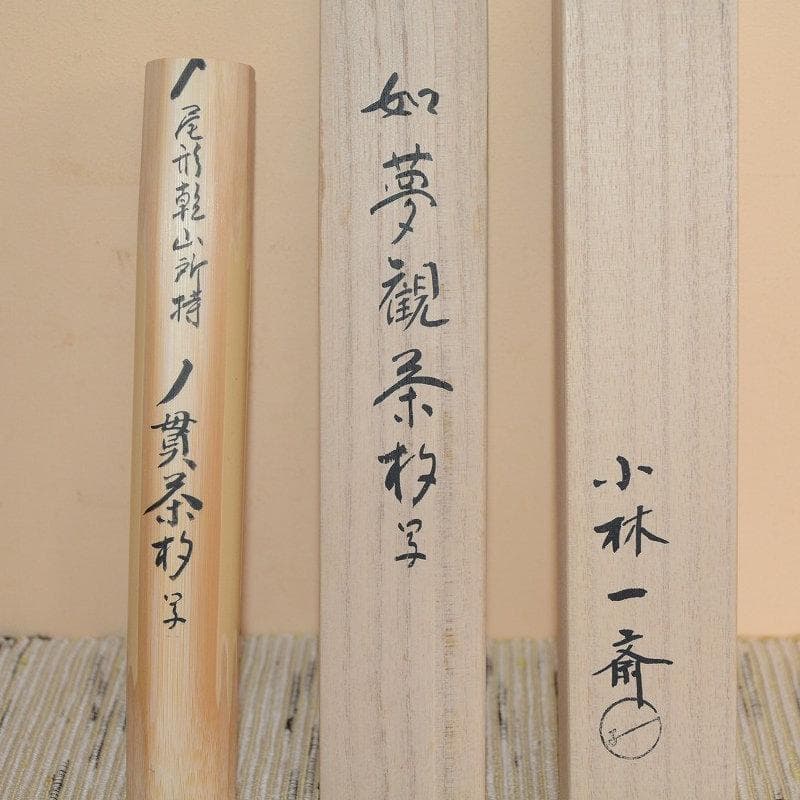 尾形乾山所持
ノ貫茶杓写
如夢観茶杓写
小林一斎